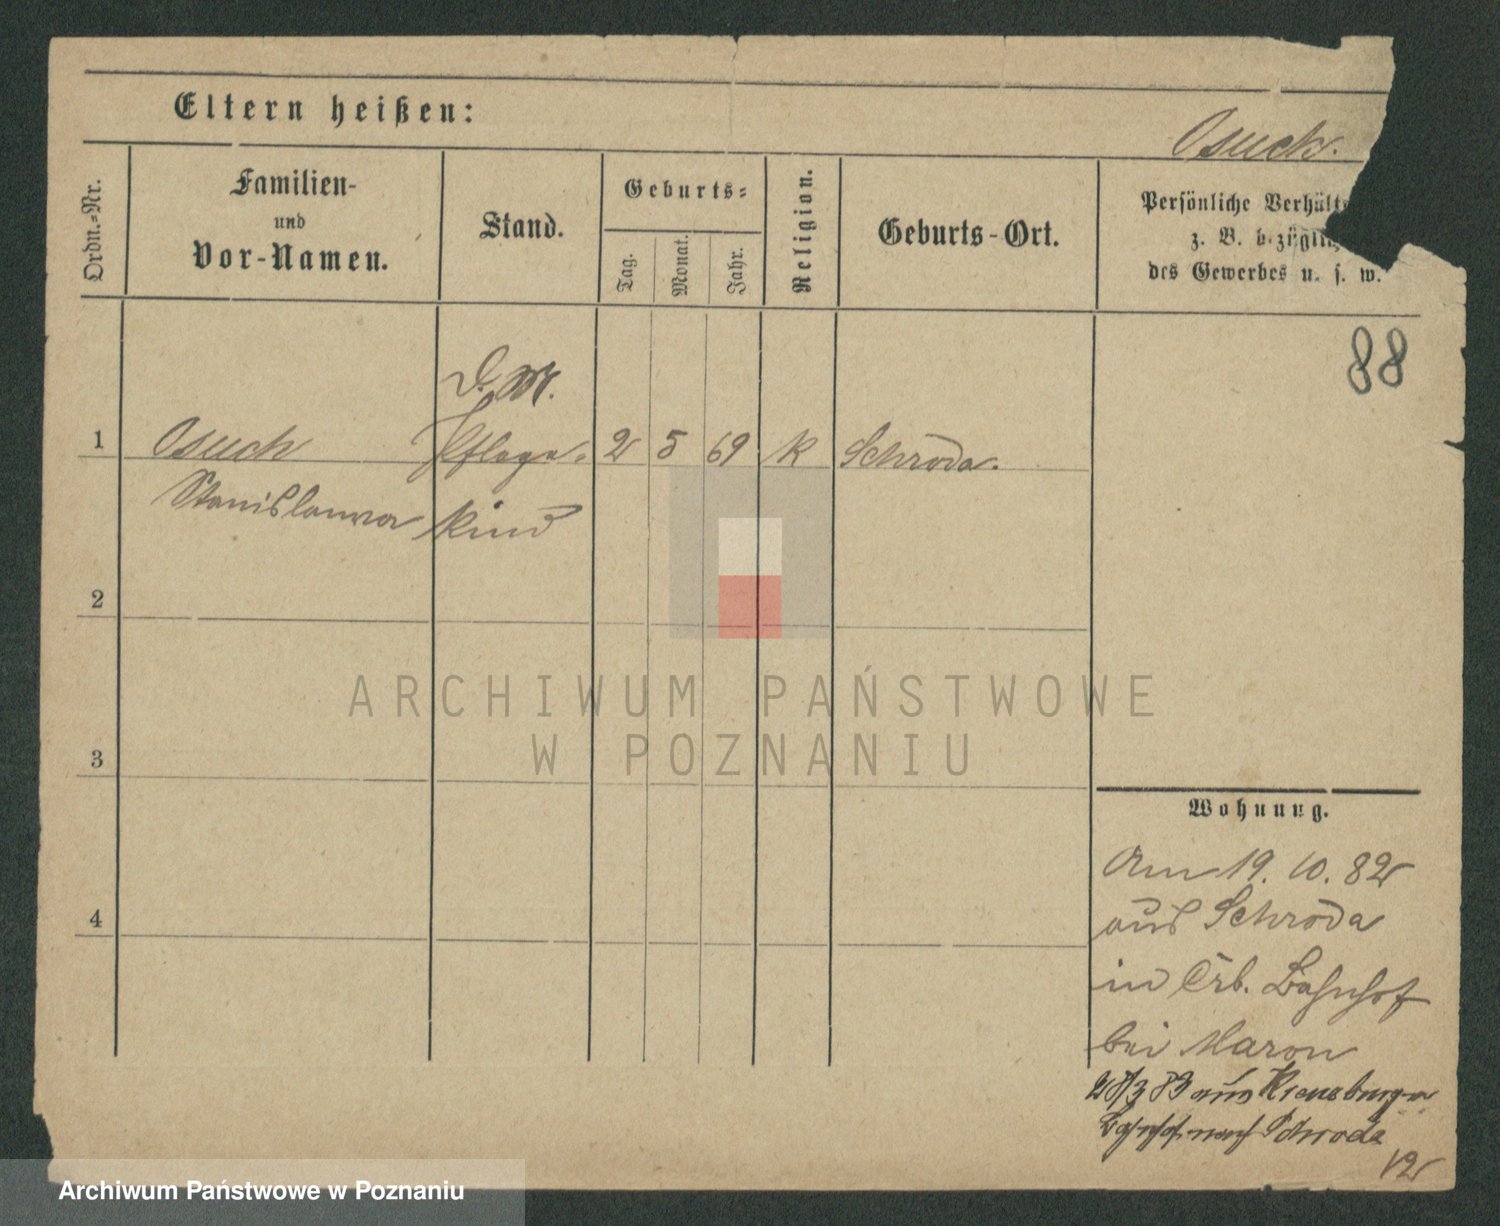 Eltern heißen:
Osuch.
Ordn.-Nr.
Familien-
und
Vor-Namen.
Stand.
Geburts-
Tag.
Monat.
Jahr.
Religion.
Geburts-Ort.
Persönliche Verhält
z. B. bezüglich
des Gewerbes u. s. w.
88
D. M.
1 Osuch Pflege- 2 5 69 K Schroda.
Stanislawa kind
2
3
4
Wohnung.
Am 19. 10. 82
aus Schroda
in Crb. Bahnhof
bei Maron
28/3 83 aus Kreuzburger
Bahnhof nach Schroda
12
ARCHIWUM PAŃSTWOWE
W POZNANIU
Archiwum Państwowe w Poznaniu